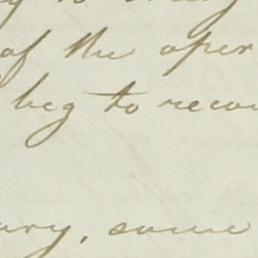 of the oper
beg to recou
ury, came